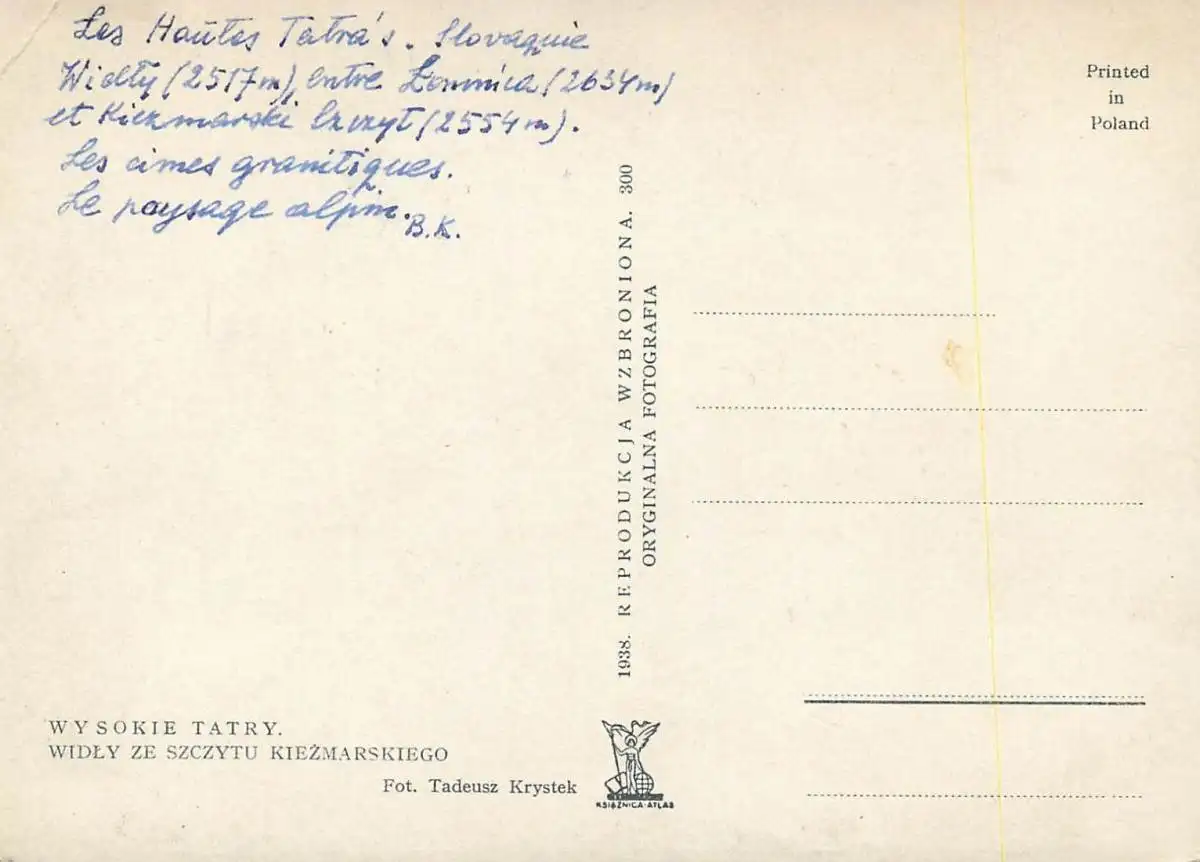 Les Hautes Tatra's. Slovaquie
Widły (2517m), entre Łomnica (2634m)
et Kiezmarski Szczyt (2554m).
Les cimes granitiques.
Le paysage alpin.
B.K.
Printed
in
Poland
1938. REPRODUKCJA WZBRONIONA. 300
ORYGINALNA FOTOGRAFIA
WYSOKIE TATRY.
WIDŁY ZE SZCZYTU KIEŻMARSKIEGO
Fot. Tadeusz Krystek
KSIĄŻNICA-ATLAS